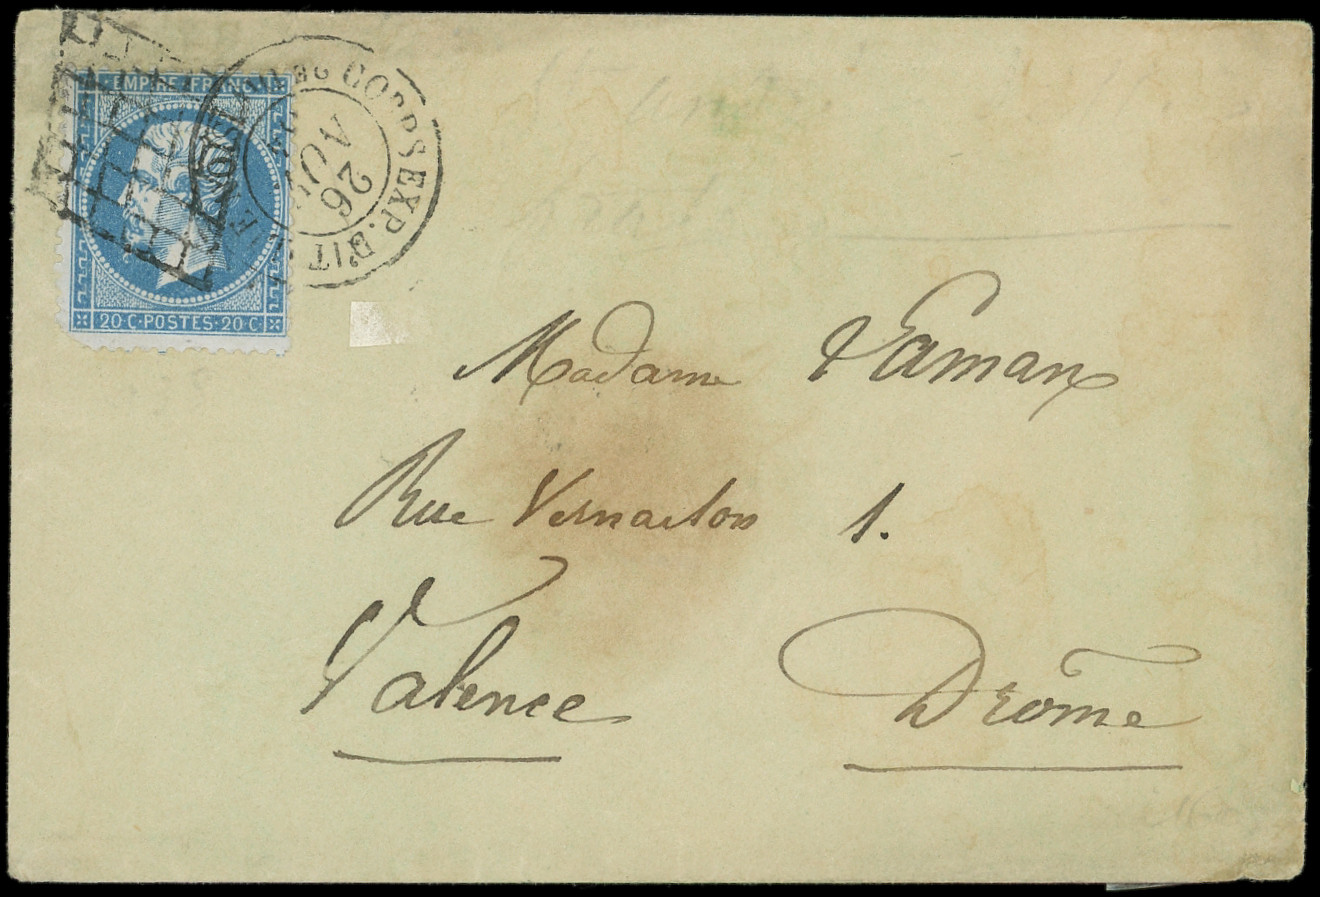 EMPIRE FRANC
20·C·POSTES·20·C·
CORPS EXP. D'IT
26
AOU
Madame
Rue Vernaelon 1.
Valence Drôme